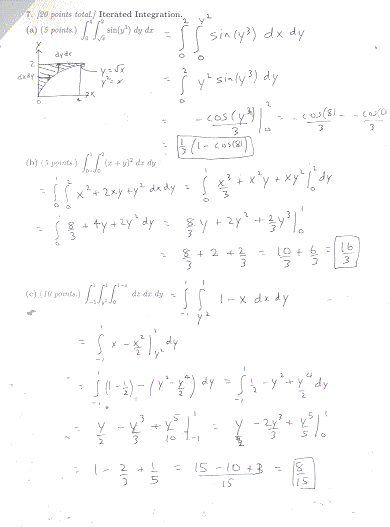 7. [20 points total] Iterated Integration.
(a) (5 points.) ∫₀⁴ ∫_√x² sin(y³) dy dx = ∫₀² ∫₀^y² sin(y³) dx dy
dydx
dxdy
y=√x
y²=x
= ∫₀² y² sin(y³) dy
= -cos(y³)/3 |₀² = -cos(8)/3 - -cos(0)/3
= 1/3 (1-cos(8))
(b) (5 points.) ∫₀¹ ∫₀² (x + y)² dx dy
= ∫₀¹ ∫₀² x²+2xy+y² dxdy = ∫₀¹ x³/3 + x²y + xy² |₀² dy
= ∫₀¹ 8/3 + 4y + 2y² dy = 8/3 y + 2y² + 2/3 y³ |₀¹
= 8/3 + 2 + 2/3 = 10/3 + 6/3 = 16/3
(c) (10 points.) ∫₋₁¹ ∫_y²¹ ∫₀^1-x dz dx dy = ∫₋₁¹ ∫_y²¹ 1-x dx dy
= ∫₋₁¹ x - x²/2 |_y²¹ dy
= ∫₋₁¹ (1-1/2) - (y²-y⁴/2) dy = ∫₋₁¹ 1/2 - y² + y⁴/2 dy
= y/2 - y³/3 + y⁵/10 |₋₁¹ = y - 2y³/3 + y⁵/5 |₀¹
= 1 - 2/3 + 1/5 = 15-10+3/15 = 8/15